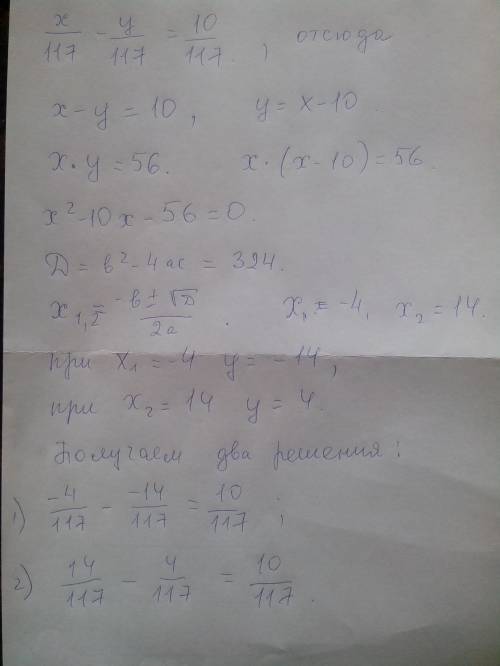 x/117 - y/117 = 10/117. , отсюда
x-y = 10 , y = x-10 .
x·y = 56. x·(x-10) = 56.
x²-10x-56=0.
Д = b²-4ac = 324.
x₁,₂ = (-b±√Д)/2a . x₁ = -4, x₂ = 14.
при x₁ = -4 y = -14 ,
при x₂ = 14 y = 4.
Получаем два решения:
1) -4/117 - -14/117 = 10/117 ;
2) 14/117 - 4/117 = 10/117 .